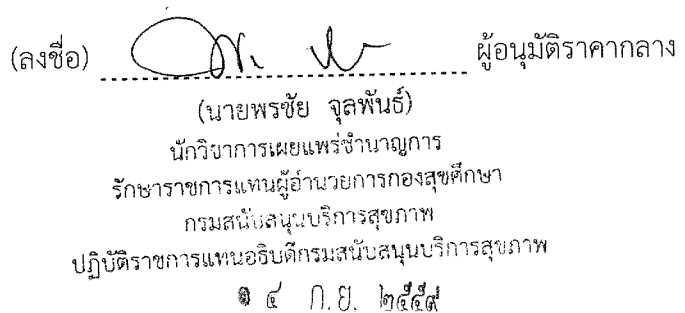 (ลงชื่อ) ผู้อนุมัติราคากลาง
(นายพรชัย จุลพันธ์)
นักวิชาการเผยแพร่ชำนาญการ
รักษาราชการแทนผู้อำนวยการกองสุขศึกษา
กรมสนับสนุนบริการสุขภาพ
ปฏิบัติราชการแทนอธิบดีกรมสนับสนุนบริการสุขภาพ
๔ ก.ย. ๒๕๕๙